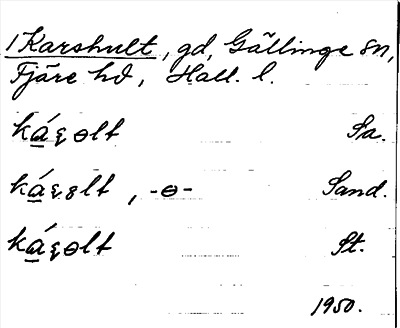 1 Karshult, gd, Gällinge sn,
Fjäre hd, Hall. l.
ká̱ꝣɵlt Sa.
ká̱ꝣȣlt, -ɵ- Sand.
ká̱ꝣɵlt St.
1950.